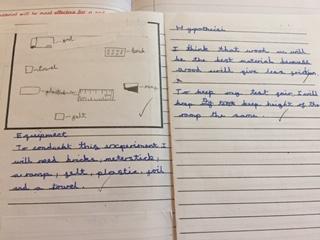 material will be most effective for a
foil
brick
towel
plastic
ramp
felt
Equipment
To conduct this experiment I
will need bricks, meterstick,
a ramp, felt, plastic, foil
and a towel.
Hypothesis
I think that wool will
be the best material because
wool will give less friction
To keep my test fair I will
keep the height of the
ramp the same.